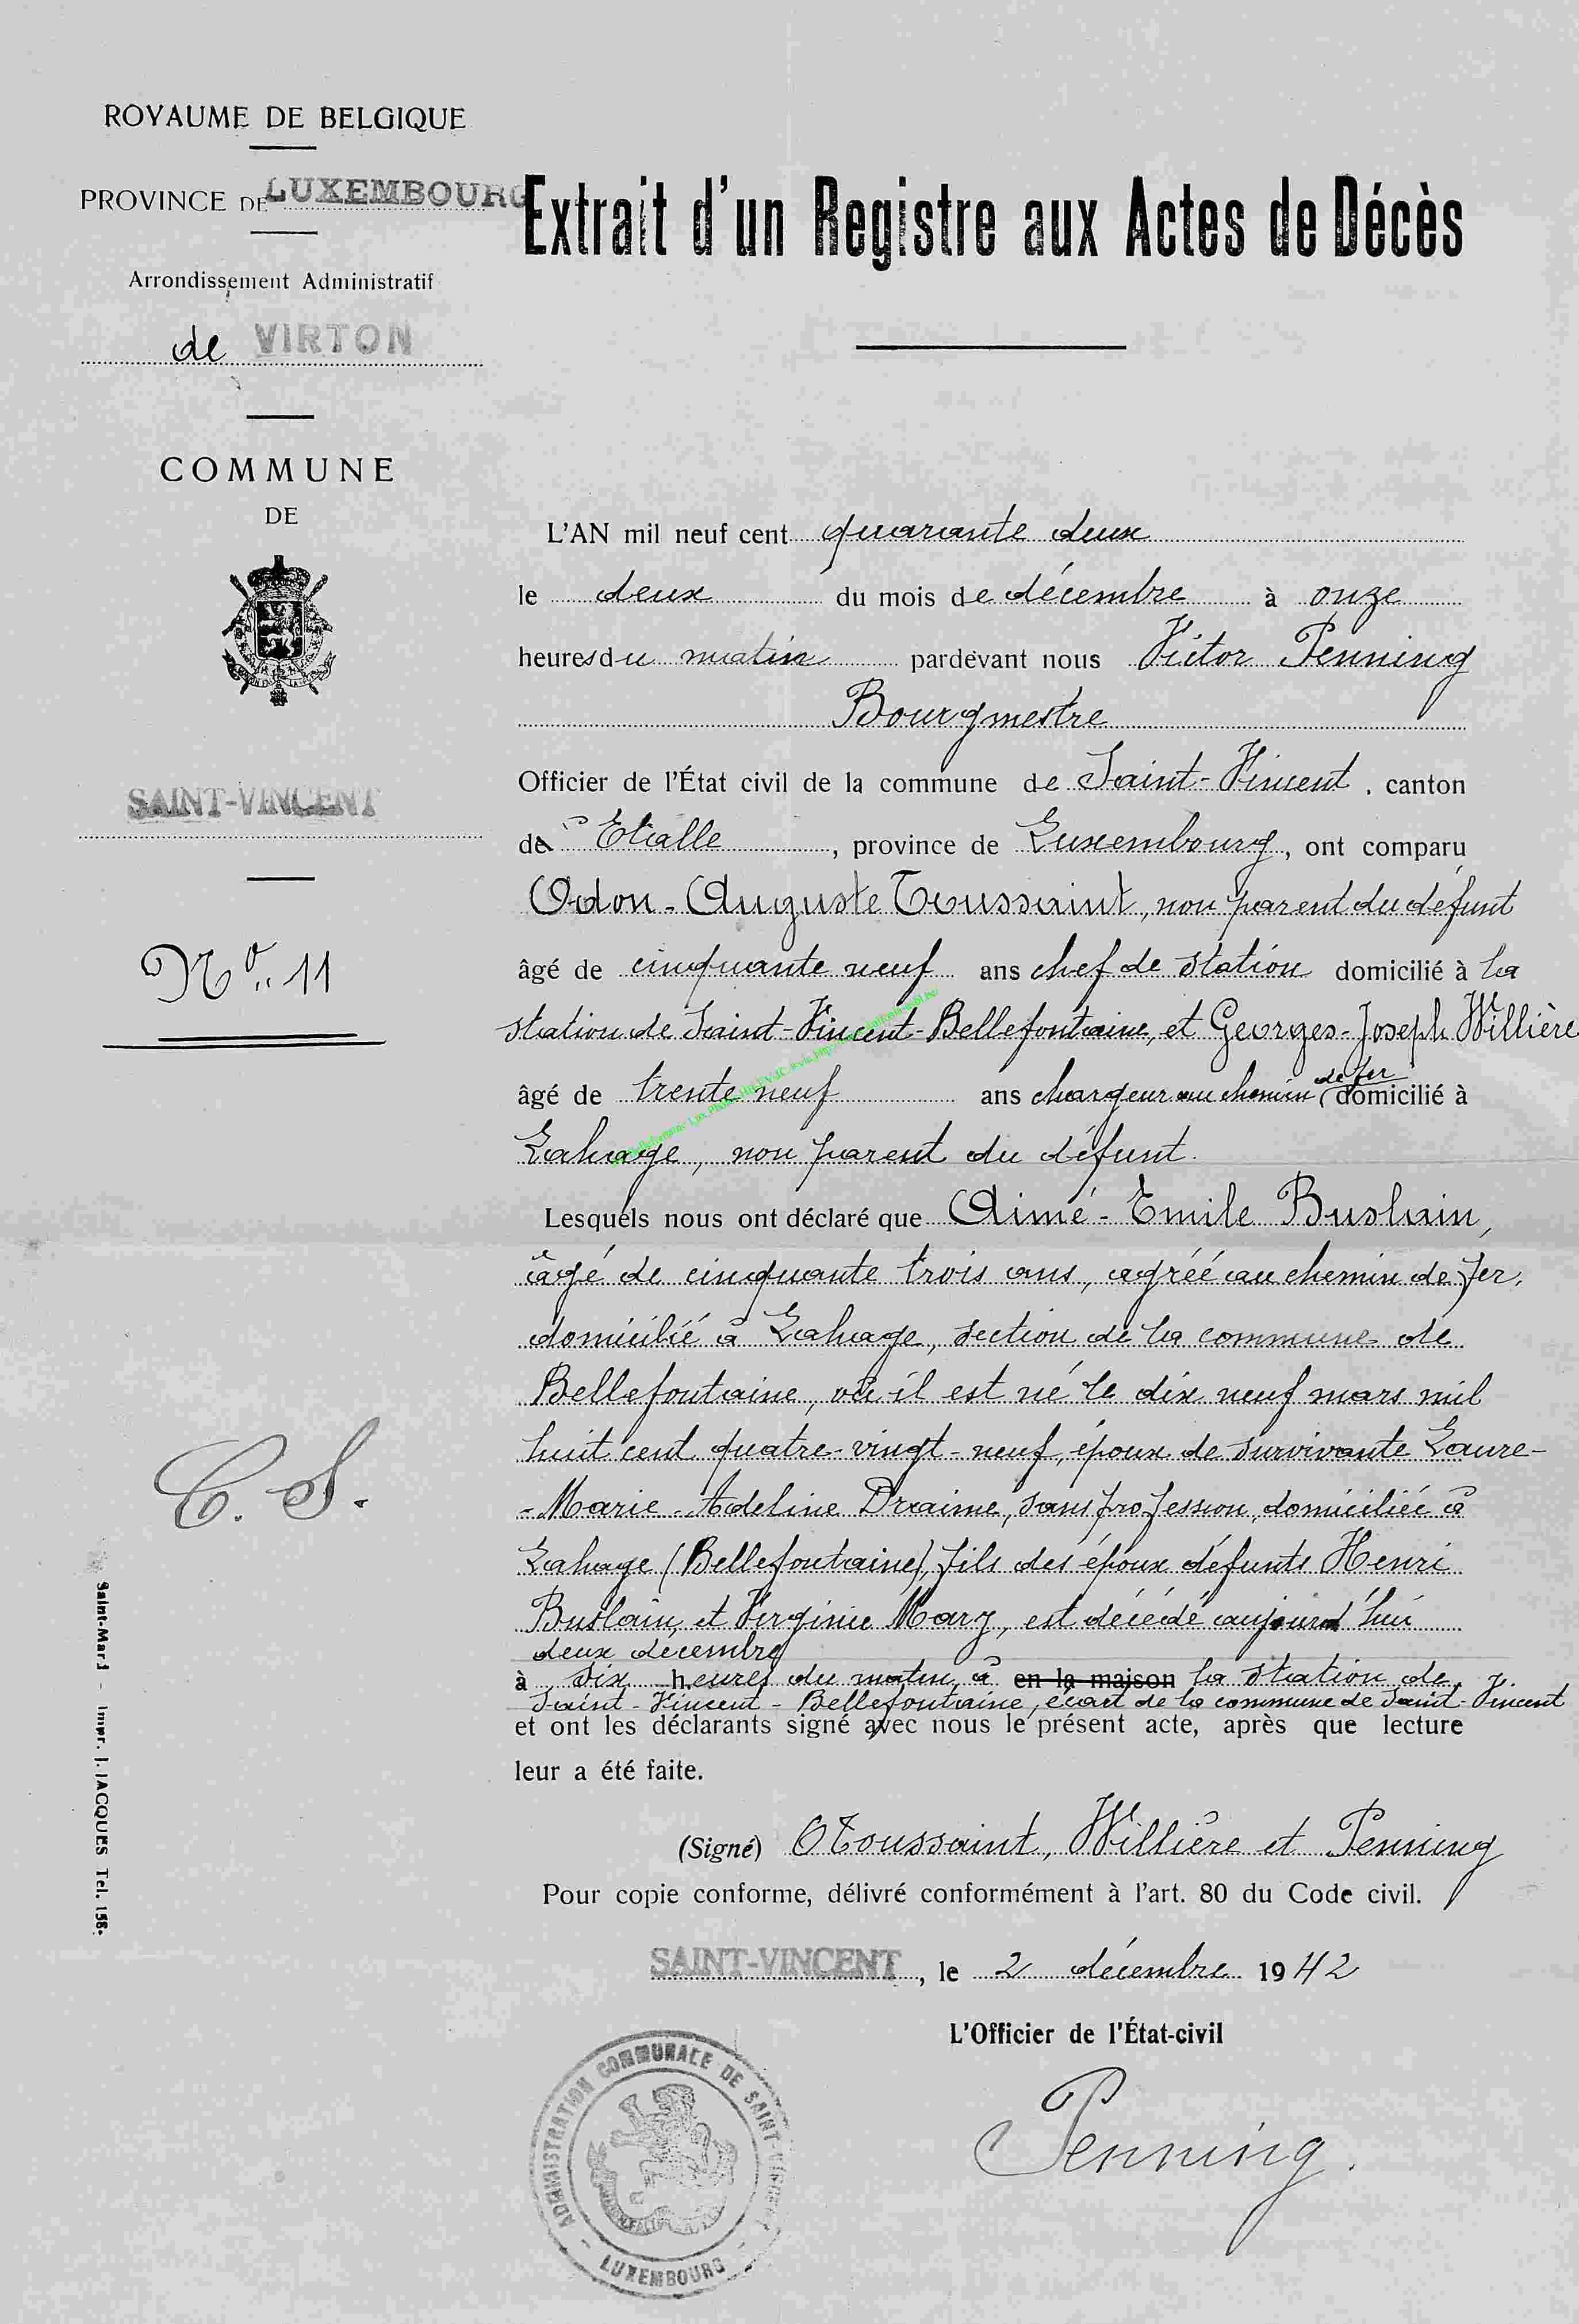 ROYAUME DE BELGIQUE
PROVINCE DE LUXEMBOURG
Arrondissement Administratif
de VIRTON
COMMUNE
DE
SAINT-VINCENT
No. 11
C. S.
Saint-Mard - Impr. J. JACQUES Tel. 158.
Extrait d'un Registre aux Actes de Décès
L'AN mil neuf cent quarante deux
le deux du mois de décembre à onze
heures du matin pardevant nous Victor Penning
Bourgmestre
Officier de l'État civil de la commune de Saint-Vincent, canton
d' Etalle, province de Luxembourg, ont comparu
Odon-Auguste Toussaint, non parent du défunt
âgé de cinquante neuf ans chef de station domicilié à la
station de Saint-Vincent-Bellefontaine, et Georges-Joseph Willière
âgé de trente neuf ans chargeur au chemin de fer domicilié à
Lahage, non parent du défunt.
Lesquels nous ont déclaré que Aimé-Emile Buslain,
âgé de cinquante trois ans, agréé au chemin de fer,
domicilié à Lahage, section de la commune de
Bellefontaine, où il est né le dix neuf mars mil
huit cent quatre-vingt-neuf, époux de survivante Laure-
-Marie-Adeline Draime, sans profession, domiciliée à
Lahage (Bellefontaine), fils des époux défunts Henri
Buslain, et Virginie Mary, est décédé aujourd'hui
deux décembre
à six heures du matin, à en la maison la station de
Saint-Vincent-Bellefontaine, écart de la commune de Saint-Vincent
et ont les déclarants signé avec nous le présent acte, après que lecture
leur a été faite.
(Signé) O Toussaint, Willière et Penning
Pour copie conforme, délivré conformément à l'art. 80 du Code civil.
SAINT-VINCENT, le 2 décembre 1942
L'Officier de l'État-civil
Penning.
ADMINISTRATION COMMUNALE DE SAINT-VINCENT
- LUXEMBOURG -